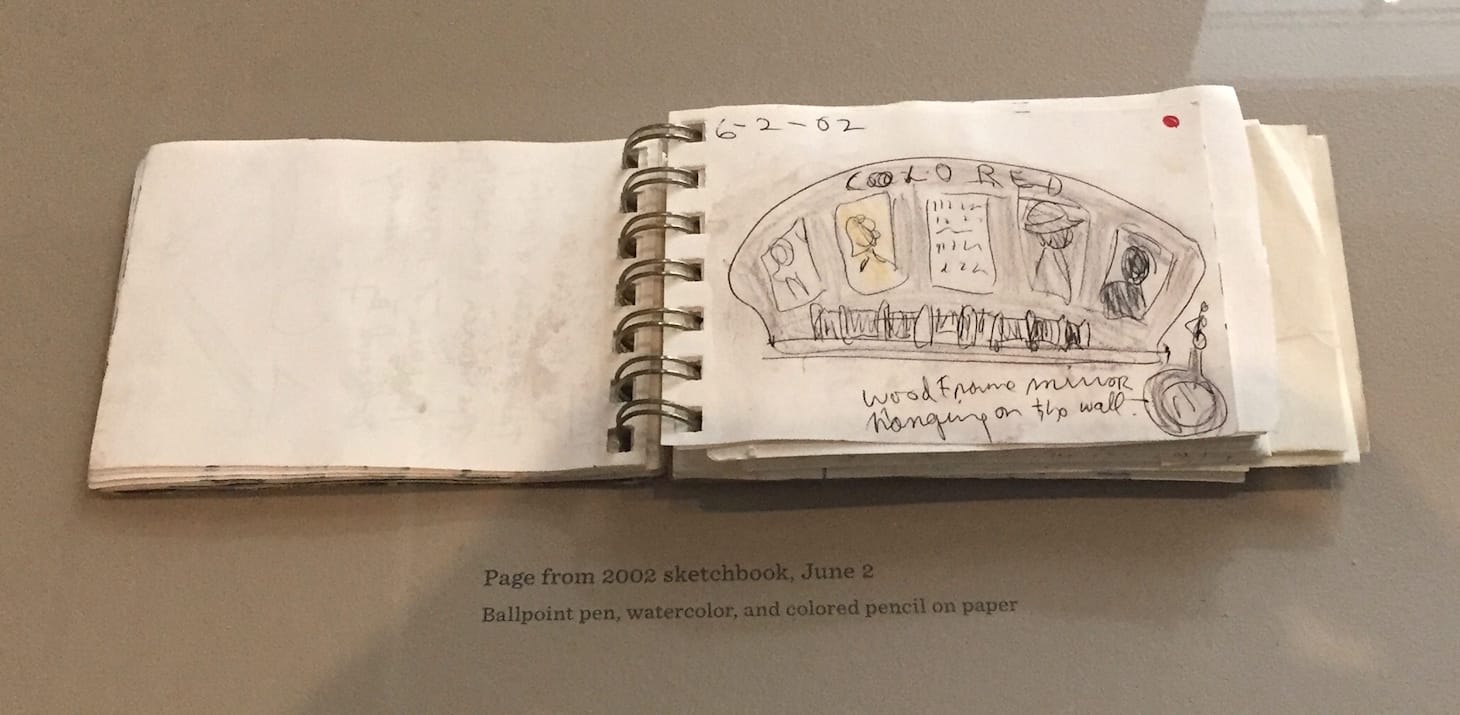 6-2-02
COLORED
wood Frame mirror
Hanging on the wall.
Page from 2002 sketchbook, June 2
Ballpoint pen, watercolor, and colored pencil on paper